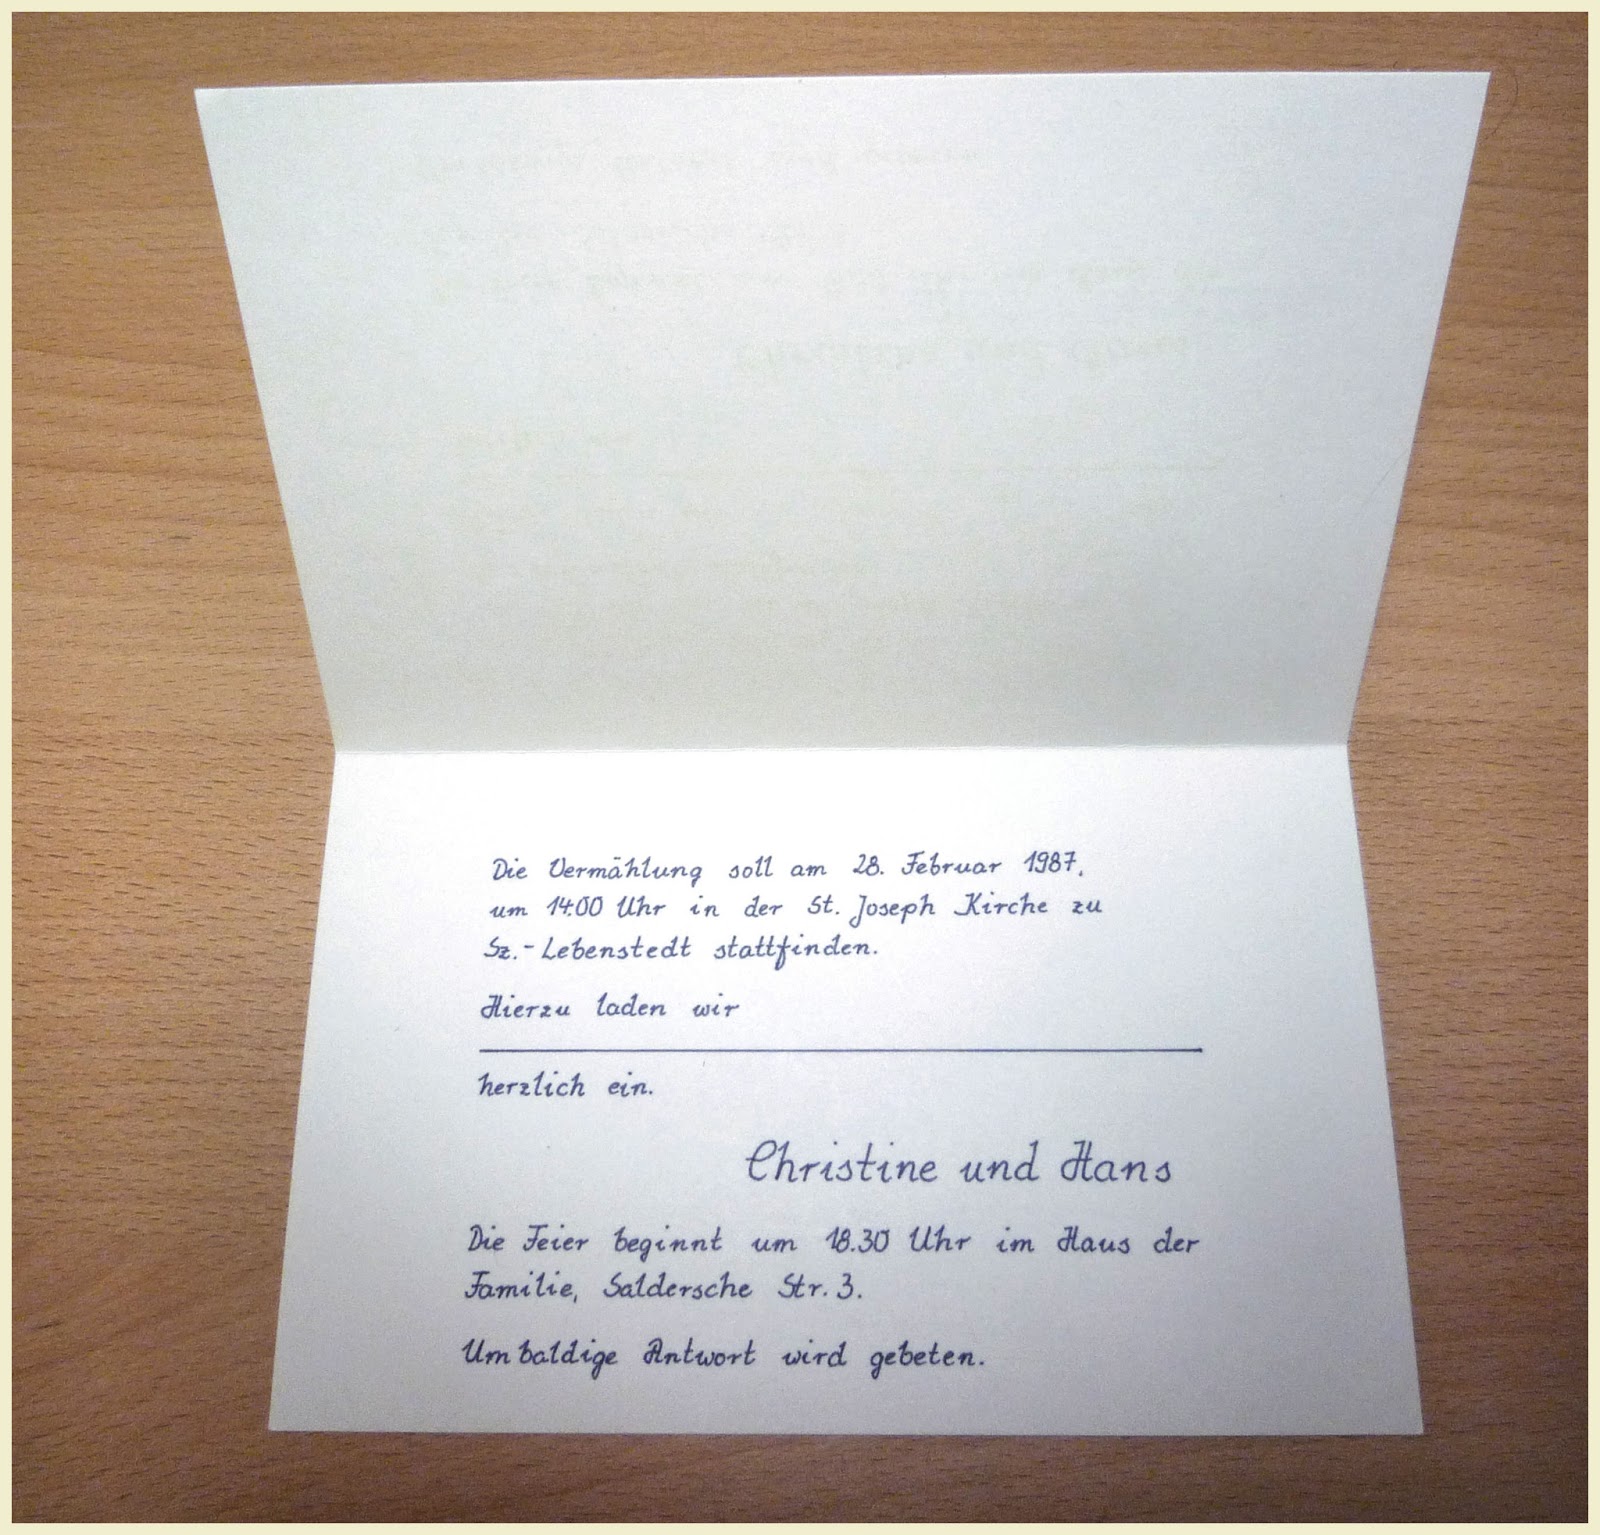 Die Vermählung soll am 28. Februar 1987,
um 14.00 Uhr in der St. Joseph Kirche zu
Sz.-Lebenstedt stattfinden.
Hierzu laden wir
herzlich ein.
Christine und Hans
Die Feier beginnt um 18.30 Uhr im Haus der
Familie, Saldersche Str. 3.
Um baldige Antwort wird gebeten.